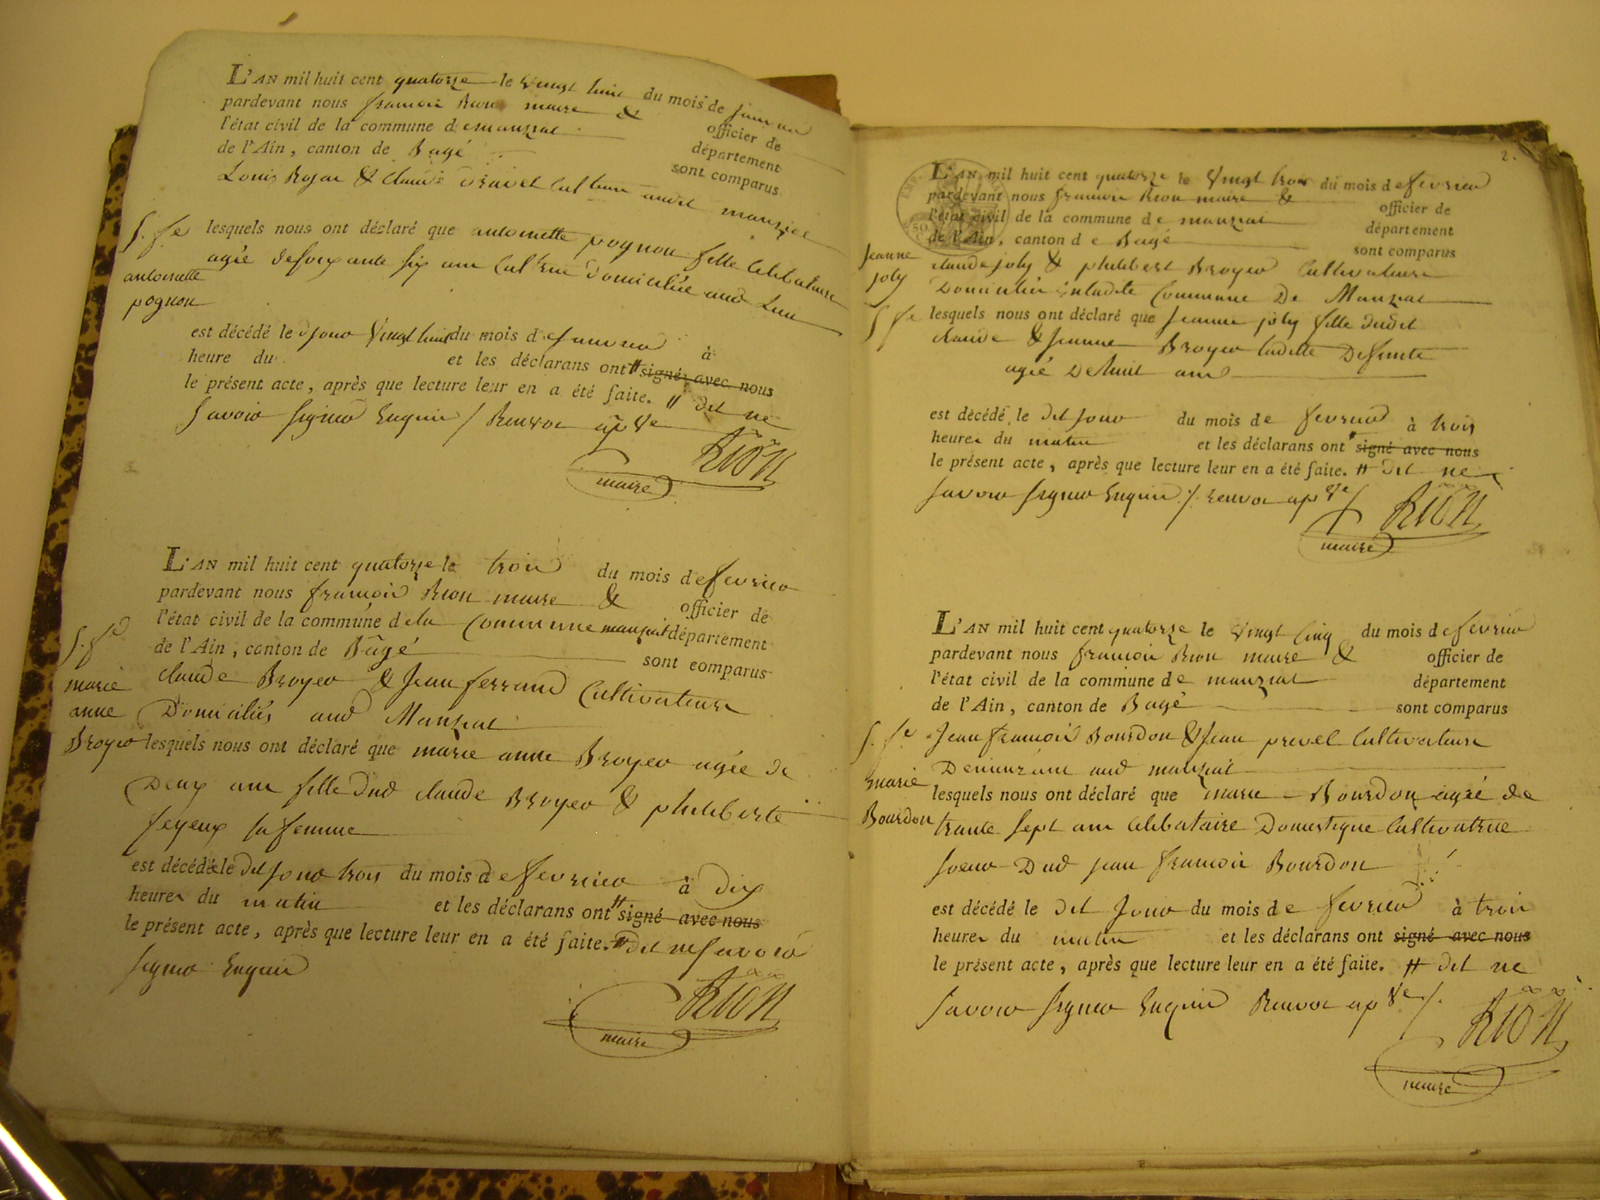 L'AN mil huit cent quatorze le vingt huit du mois de janvier
pardevant nous francois Rion maire & officier de
l'état civil de la commune de manziat département
de l'Ain, canton de Bagé sont comparus
Louis & claude cultivateurs audit manziat
lesquels nous ont déclaré que antoinette pognon fille celibataire
agée de soixante six ans domiciliée aud lieu
S. fe
antoinette
pognon
est décédé le jour vingt huit du mois de janvier à
heure du et les déclarans ont # signé avec nous
le présent acte, après que lecture leur en a été faite. # dit ne
savoir signer Enquis / Renvoi apvé
RION
maire
L'AN mil huit cent quatorze le trois du mois de fevrier
pardevant nous francois Rion maire & officier de
l'état civil de la commune de la commune manziat département
de l'Ain, canton de Bagé sont comparus
claude Broyer & Jean ferrand Cultivateurs
Domiciliés aud Manziat
S. fe
marie
anne
Broyer
lesquels nous ont déclaré que marie anne Broyer agée de
Deux ans fille dud claude Broyer & philiberte
feyeux sa femme
est décédée le dit jour trois du mois de fevrier à dix
heures du matin et les déclarans ont # signé avec nous
le présent acte, après que lecture leur en a été faite. # dit ne savoir
signer Enquis
RION
maire
2.
L'AN mil huit cent quatorze le vingt trois du mois de fevrier
pardevant nous francois Rion maire & officier de
l'état civil de la commune de manziat département
de l'Ain, canton de Bagé sont comparus
claude joly & philibert Broyer Cultivateurs
Domiciliés en ladite Commune De Manziat
Jeanne
joly
S fe
lesquels nous ont déclaré que Jeanne joly fille dudit
claude & Jeanne Broyer ladite Defunte
agée De huit ans
est décédé le dit jour du mois de fevrier à trois
heures du matin et les déclarans ont # signé avec nous
le présent acte, après que lecture leur en a été faite. # dit ne
savoir signer Enquis /. renvoi apvé /
RION
maire
L'AN mil huit cent quatorze le vingt cinq du mois de fevrier
pardevant nous francois Rion maire & officier de
l'état civil de la commune de manziat département
de l'Ain, canton de Bagé sont comparus
Jean francois Bourdon & Jean prevel Cultivateurs
Demeurant aud manziat
S. fe
marie
Bourdon
lesquels nous ont déclaré que marie Bourdon agée de
trante sept ans celibataire Domestique Cultivatrice
soeur Dud jean francois Bourdon
est décédé le dit Jour du mois de fevrier à trois
heures du matin et les déclarans ont signé avec nous
le présent acte, après que lecture leur en a été faite. # dit ne
savoir signer Enquis Renvoi apvé /.
RION
maire